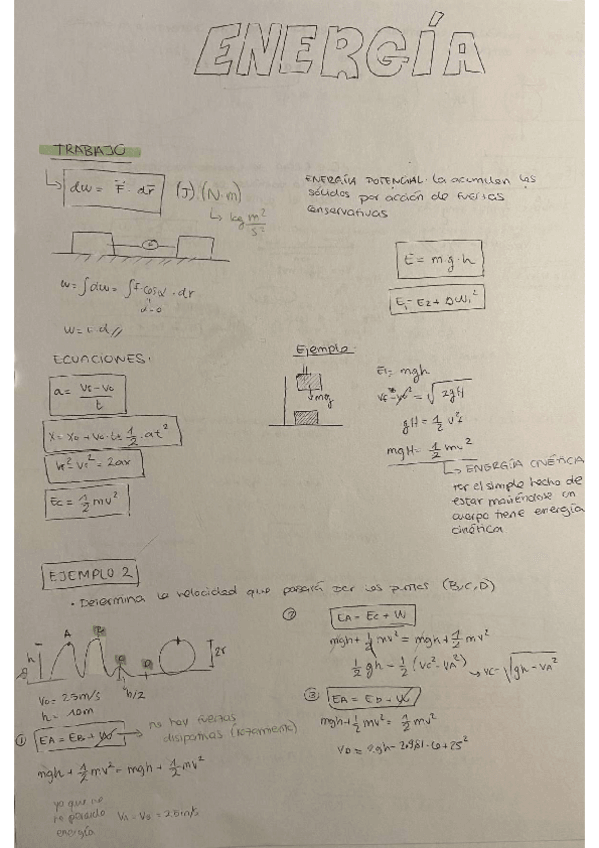 ENERGÍA
TRABAJO
dw = F · dr (J) (N·m)
kg m²/s²
w = ∫dw = ∫F·cosα · dr
α=0
ECUACIONES:
a = vf - vo / t
x = xo + vo·t + 1/2 · at²
vf² - vo² = 2ax
Ec = 1/2 mv²
ENERGÍA POTENCIAL: la acumulan los
sólidos por acción de fuerzas
conservativas
E = m·g·h
Ejemplo
mg
E1 = mgh
gH = 1/2 v²f
mgH = 1/2 mv²
ENERGÍA CINÉTICA
Por el simple hecho de
estar moviéndose un
cuerpo tiene energía
cinética
EJEMPLO 2
· Determina la velocidad que pasará por los puntos (B, C, D)
A B C D
h
2r
h/2
vo = 25m/s
h = 10m
① EA = EB + W
no hay fuerzas
disipativas (rozamiento)
mgh + 1/2 mv² = mgh + 1/2 mv²
ya que no
ha perdido
energía
VA = VB = 25m/s
② EA = Ec + W
mgh + 1/2 mv² = mgh + 1/2 mv²
1/2 gh = 1/2 (vc² - vA²) → vc = √gh - vA²
③ EA = ED + W
mgh + 1/2 mv² = 1/2 mv²